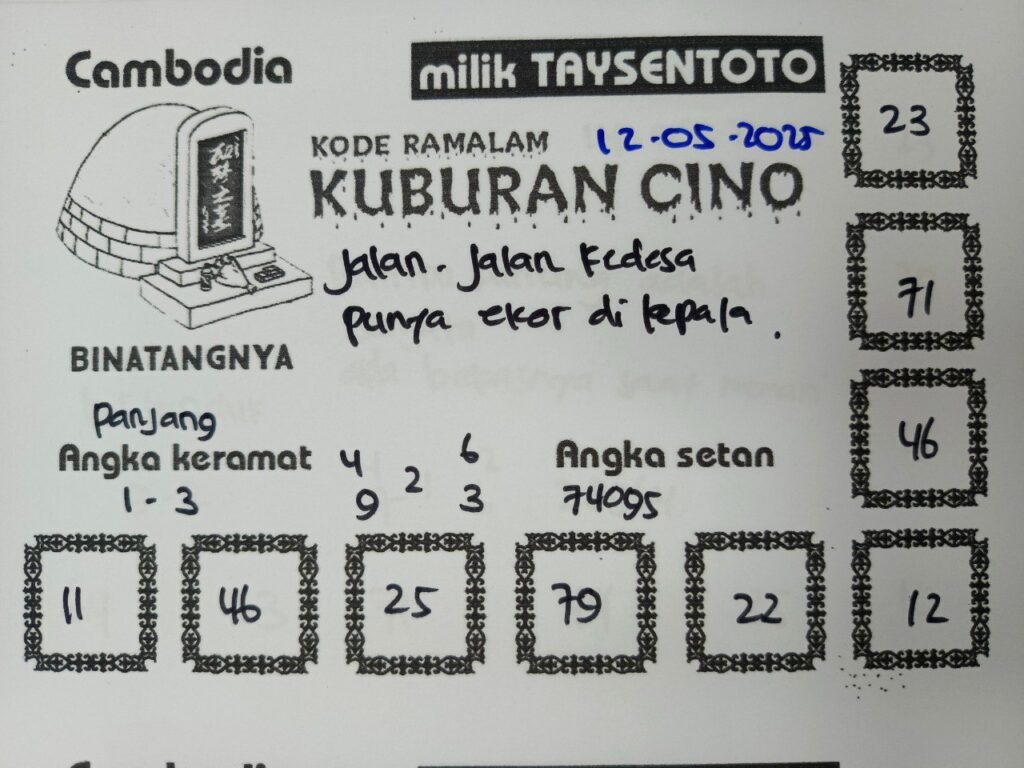 Cambodia
milik TAYSENTOTO
KODE RAMALAM
12-05-2025
KUBURAN CINO
Jalan-Jalan Kedesa
punya ekor di kepala.
BINATANGNYA
panjang
Angka keramat
1-3
4 6
2
9 3
Angka setan
74095
23
71
46
11 46 25 79 22 12